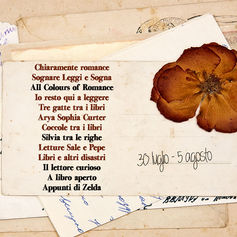 Chiaramente romance
Sognare Leggi e Sogna
All Colours of Romance
Io resto qui a leggere
Tre gatte tra i libri
Arya Sophia Curter
Coccole tra i libri
Silvia tra le righe
Letture Sale e Pepe
Libri e altri disastri
Il lettore curioso
A libro aperto
Appunti di Zelda
30 luglio - 5 agosto